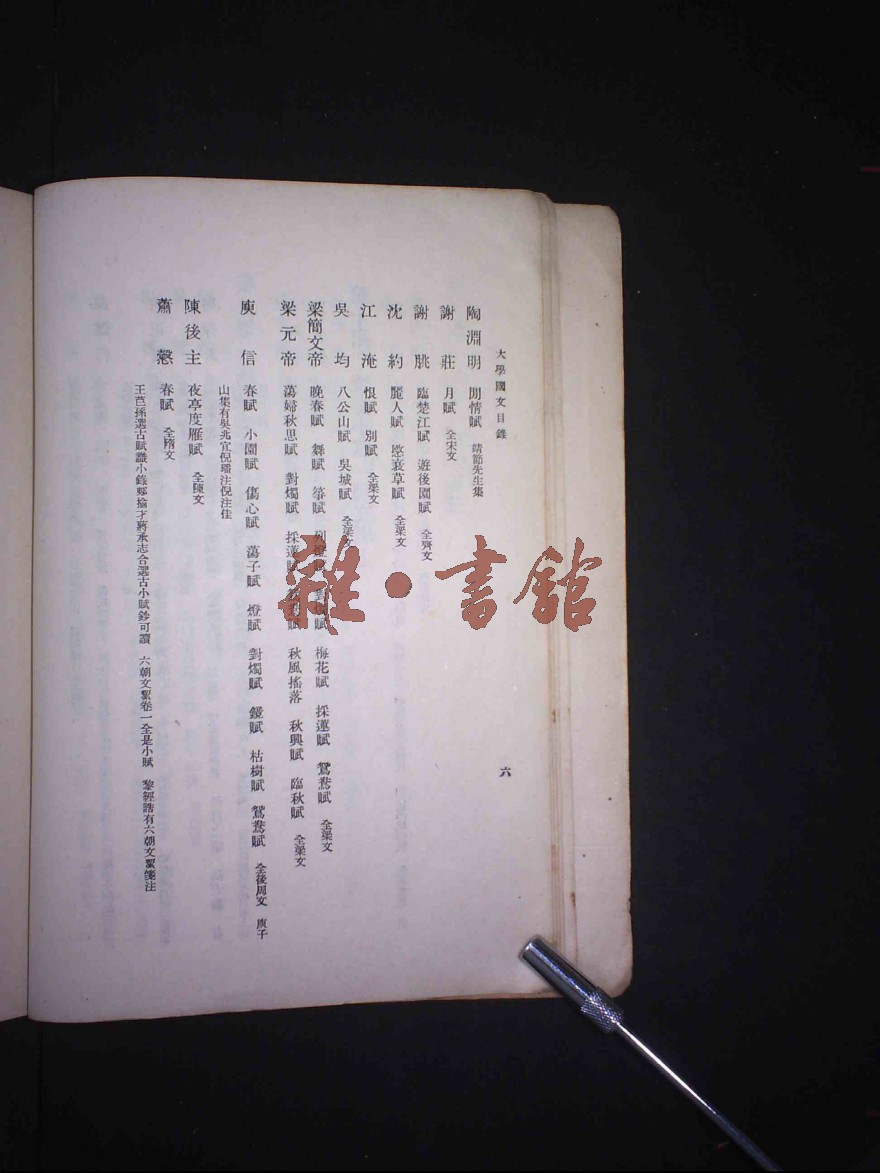 大學國文目錄
六
陶淵明 閒情賦 靖節先生集
謝莊 月賦 全宋文
謝朓 臨楚江賦 遊後園賦 全齊文
沈約 麗人賦 愍衰草賦 全梁文
江淹 恨賦 別賦 全梁文
吳均 八公山賦 吳城賦 全梁文
梁簡文帝 晚春賦 舞賦 箏賦 梅花賦 採蓮賦 鴛鴦賦 全梁文
梁元帝 蕩婦秋思賦 對燭賦 採蓮賦 秋風搖落 秋興賦 臨秋賦 全梁文
庾信 春賦 小園賦 傷心賦 蕩子賦 燈賦 對燭賦 鏡賦 枯樹賦 鴛鴦賦 全後周文 庾子
山集有吳兆宜倪璠注倪注佳
陳後主 夜亭度雁賦 全陳文
蕭愨 春賦 全隋文
王芑孫選古賦識小錄 才蔣承志合選古小賦鈔可讀 六朝文絜卷一全是小賦 黎經誥有六朝文絜箋注
雜·書館